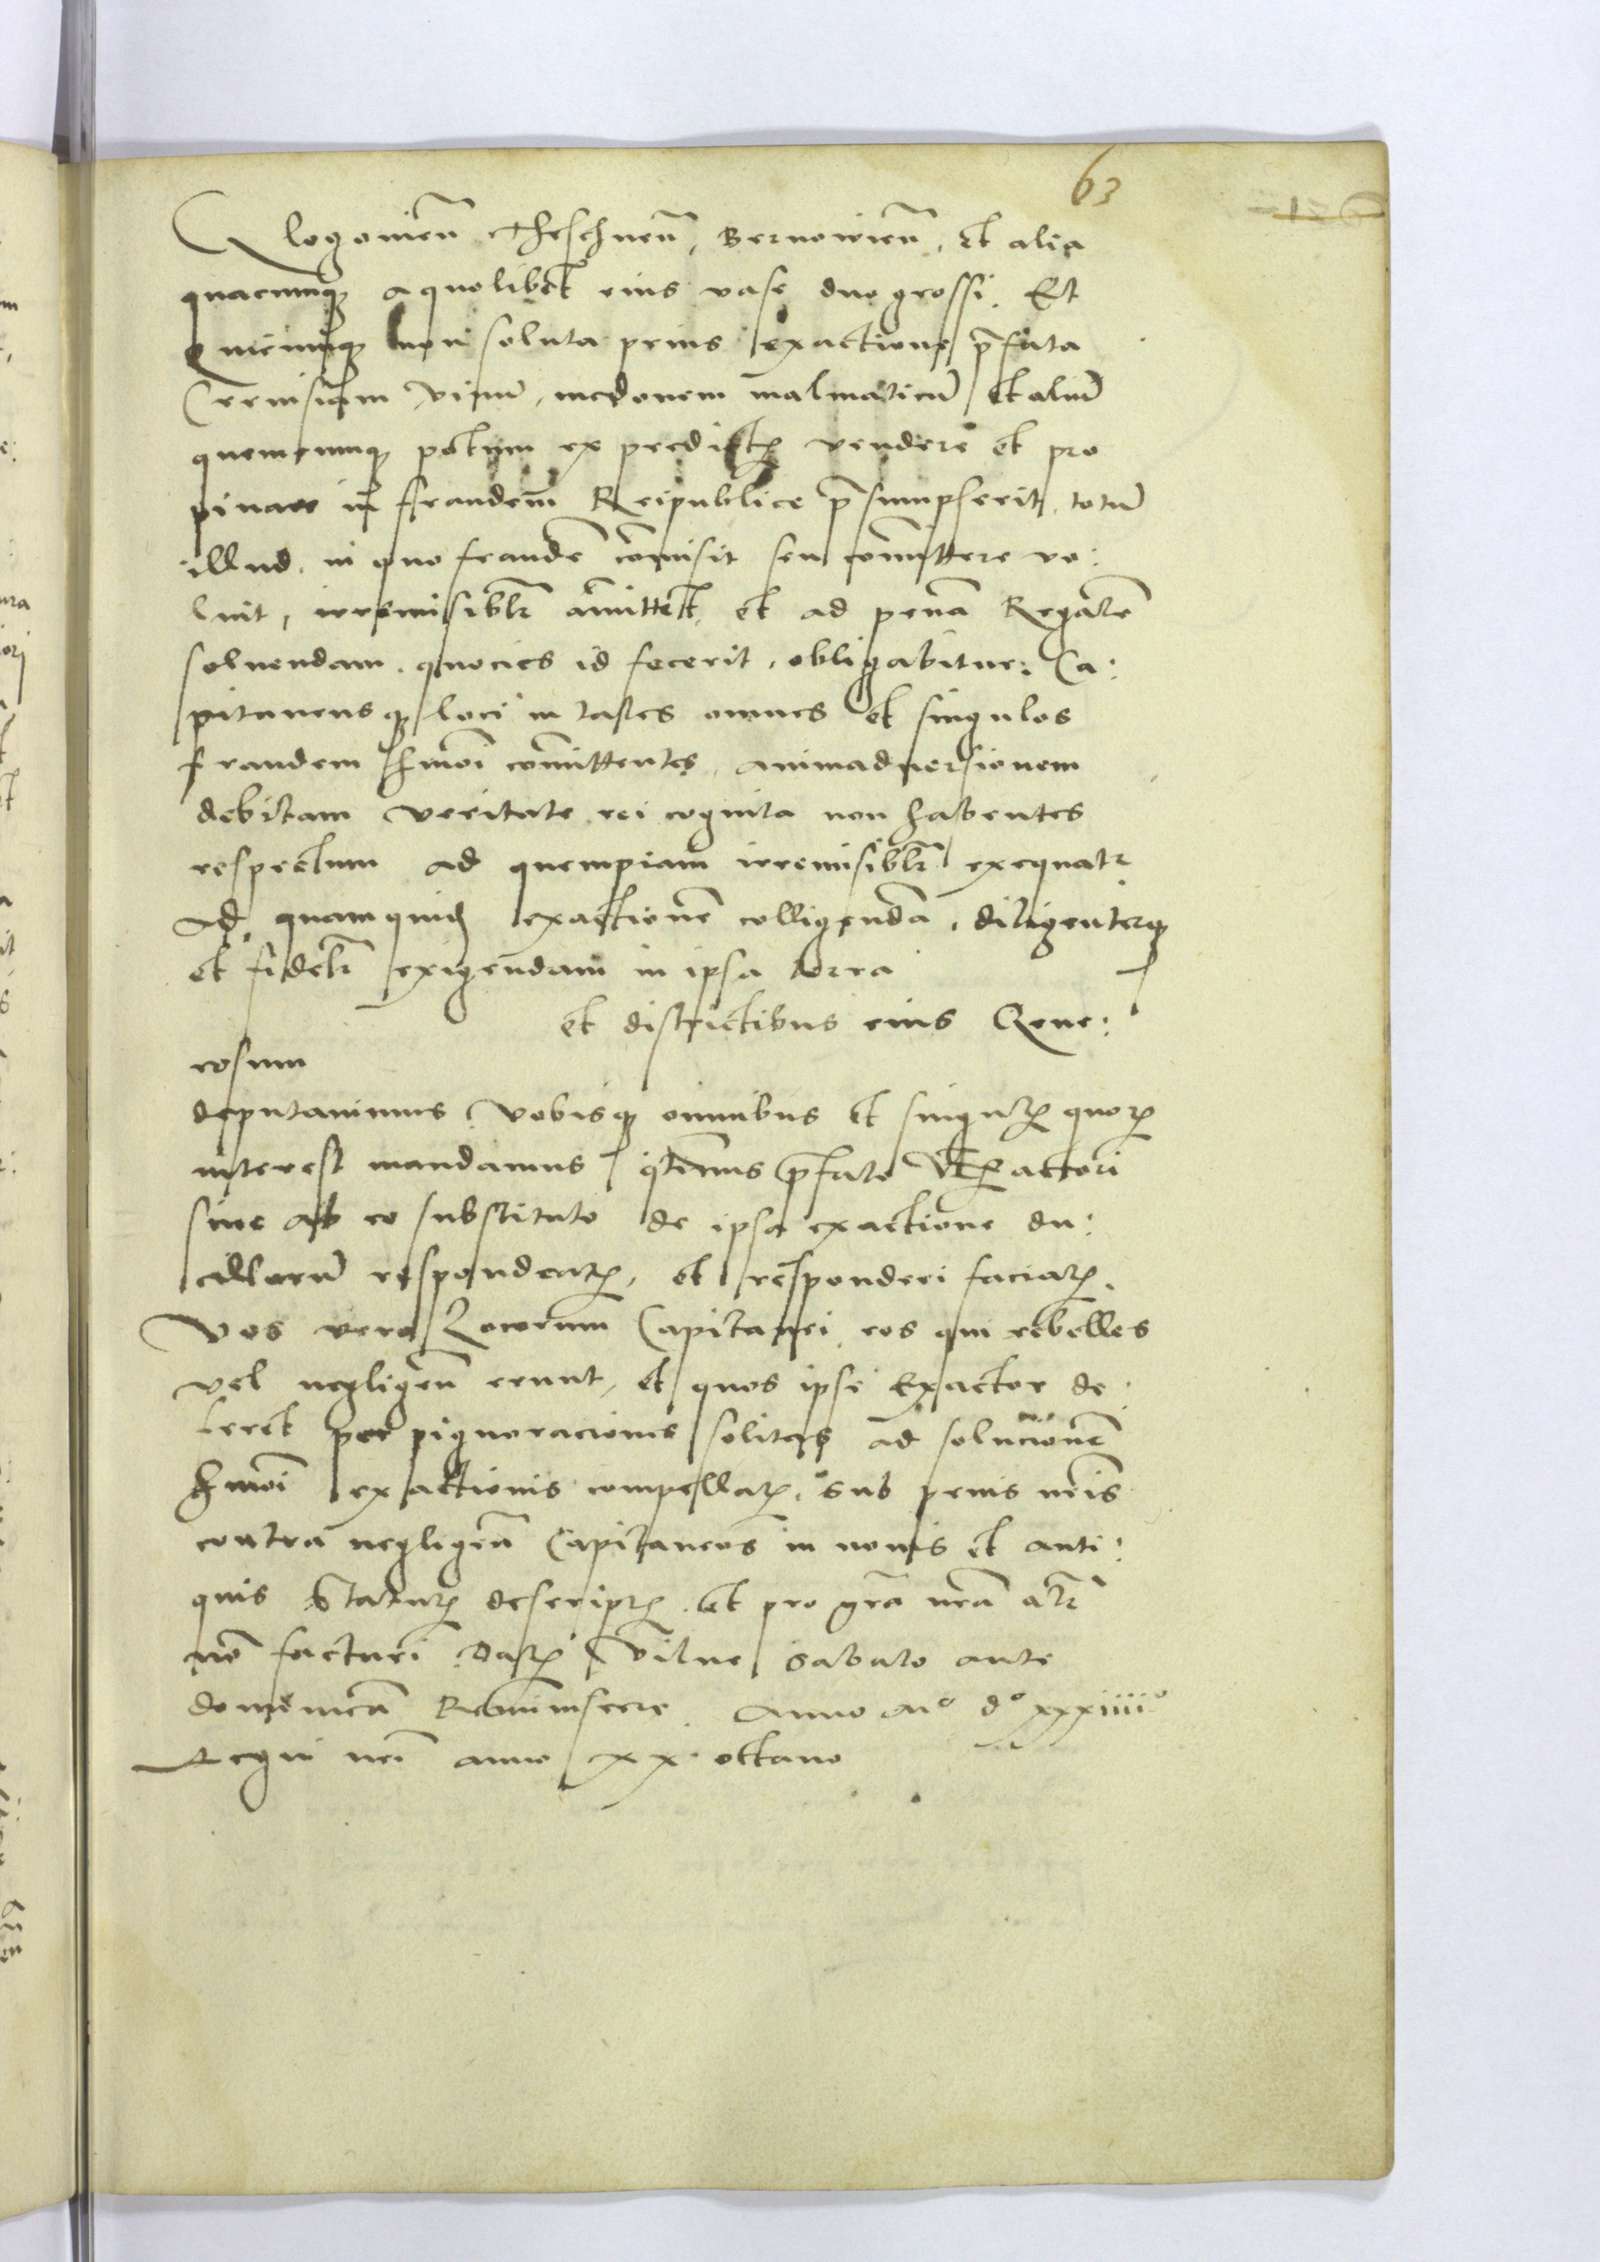 63
Glogouien̄ Theschnen̄, Bernowien̄, et alia
quaecunq̨ a quolibet eius vase duo grossi. Et
Quicunq̨ non soluta prius exactione p̄fata
Cervisiam vinū, medonem malmaticū et aliud
quemcunq̨ potum ex predictꝭ vendere et pro
pinare in fraudem Reipublice p̄sumpserit, totū
illud, in quo fraudē cōmisit seu cōmittere vo:
luit, irremisiblr̄ amittet, et ad penā Regalē
soluendam, quocies id fecerit, obligabitur: Ca:
pitaneus q̨ loci in tales omnes et singulos
fraudem hmōi cōmittentes, animaduersionem
debitam veritate rei cognita non habentes
respectum ad quempiam irremisiblr̄ exequatr
Ad quam quidē exactionē colligendā, diligenterq̨
et fidelr̄ exigendam in ipsa terra
et districtibus eius Gene:
rosum
deputauimus Vobisq̨ omnibus et singulꝭ quorꝭ
interest mandamus qtinus p̄fato Exactori
siue ab eo substituto de ipsa exactione du:
cillarū respondeatꝭ, et responderi faciatꝭ.
Vos vero Locorum Capitanei eos qui rebelles
vel negligen̄ erunt, et quos ipse Exactor de:
feret per pignoraciones solitas ad solucionē
hmōi exactionis compellatꝭ, sub penis nr̄is
contra negligen̄ Capitaneos in nouis et anti:
quis Statutꝭ descriptꝭ et pro grā nrā altr̄
nō facturi Datꝭ Vilne Sabato ante
dominicā Reminiscere. Anno Mº dº xxxiiiiº
Regni nr̄i anno xx octauo